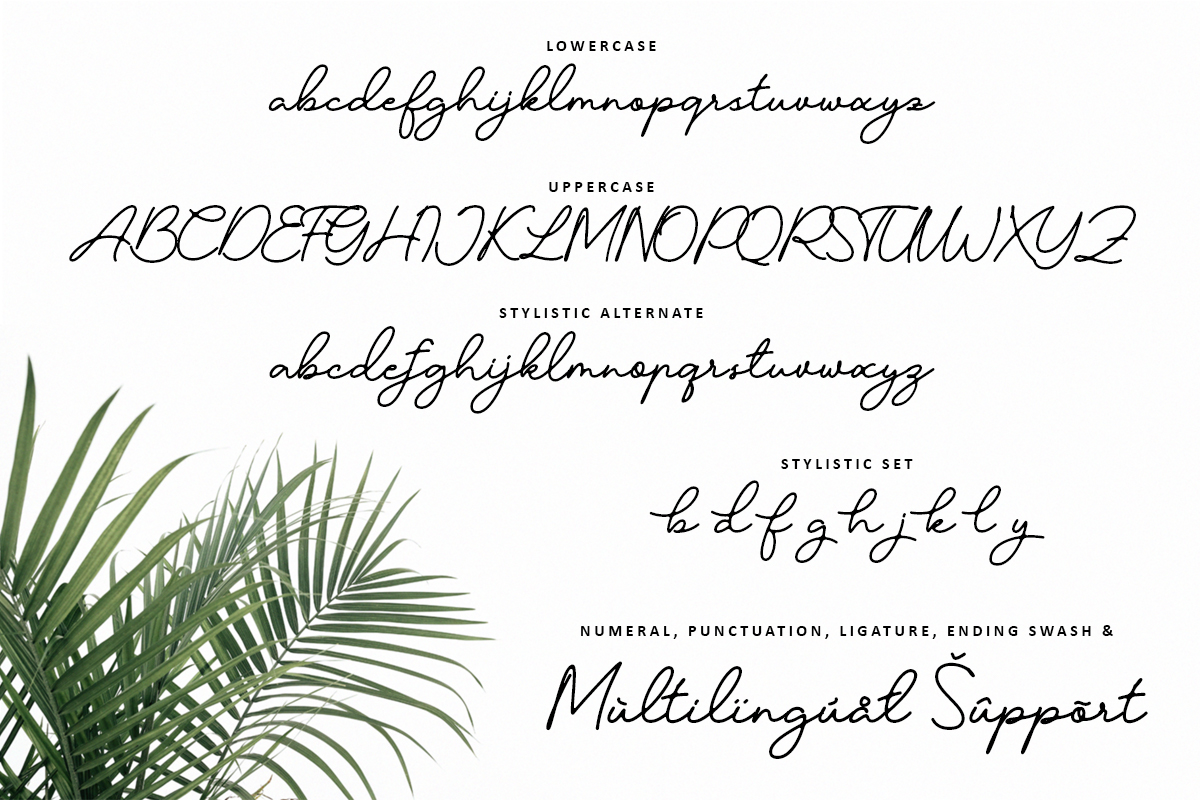 LOWERCASE
abcdefghijklmnopqrstuvwxyz
UPPERCASE
ABCDEFGHIJKLMNOPQRSTUVWXYZ
STYLISTIC ALTERNATE
abcdefghijklmnopqrstuvwxyz
STYLISTIC SET
b d f g h j k l y
NUMERAL, PUNCTUATION, LIGATURE, ENDING SWASH &
Mùltilïngúåł Šûppõrt